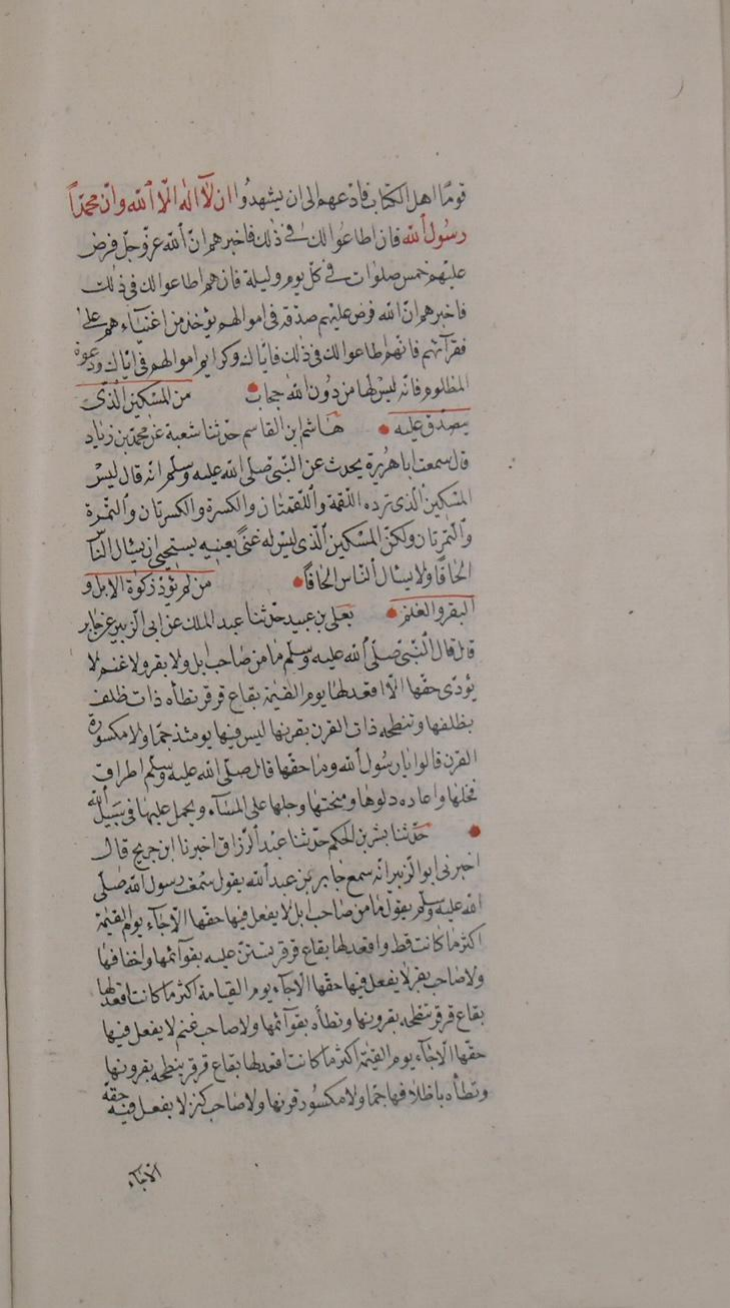 قومًا اهل الكتاب فادعهم الى ان يشهدوا ان لا اله الا الله وان محمدًا
رسول الله فان اطاعوا لك في ذلك فاخبرهم ان الله عز وجل فرض
عليهم خمس صلوات في كل يوم وليلة فان هم اطاعوا لك في ذلك
فاخبرهم ان الله فرض عليهم صدقة في اموالهم يؤخذ من اغنياءهم على
فقرآئهم فانهم اطاعوا لك في ذلك فاياك وكرايم اموالهم في اياك ودعوة
المظلوم فانه ليس لها من دون الله حجاب من المسكين الذى
يصدق عليه هاشم ابن القاسم حدثنا شعبة عن محمد بن زياد
قال سمعت ابا هريرة يحدث عن النبى صلى الله عليه وسلم انه قال ليس
المسكين الذى ترده اللقمة واللقمتان والكسرة والكسرتان والتمرة
والتمرتان ولكن المسكين الذى ليس له غنى يعنيه يستحيى ان يسال النآس
الحافًا ولا يسال الناس الحافًا من لم يؤد زكوة الابل و
البقر والغنم يعلى بن عبيد حدثنا عبد الملك عن ابى الزبير عن جابر
قال قال النبى صلى الله عليه وسلم ما من صاحب ابل ولا بقر ولا غنم لا
يؤدى حقها الا اقعد لها يوم القيمة بقاع قرقر تطأه ذات ظلف
بظلفها وتنطحه ذات القرن بقرنها ليس فيها يومئذ جما ولا مكسورة
القرن قالوا يا رسول الله وما حقها قال صلى الله عليه وسلم اطراق
فحلها واعاده دلوها ومنحتها وحلبها على المآء ويحمل عليها فى سبيل الله
حدثنا بشر بن الحكم حدثنا عبد الرزاق اخبرنا ابن جريج قال
اخبرنى ابو الزبير انه سمع جابر بن عبد الله يقول سمعت رسول الله صلى
الله عليه وسلم يقول ما من صاحب ابل لا يفعل فيها حقها الا جآء يوم القيمة
اكثر ما كانت قط واقعد لها بقاع قرقر تستن عليه بقوآئمها واخفافها
ولا صاحب بقر لا يفعل فيها حقها الا جآء يوم القيامة اكثر ما كانت اقعد لها
بقاع قرقر تنطحه بقرونها وتطأه بقوآئمها ولا صاحب غنم لا يفعل فيها
حقها الا جآء يوم القيمة اكثر ما كانت اقعد لها بقاع قرقر ينطحه بقرونها
وتطأه باظلافها جما ولا مكسور قرنها ولا صاحب كنز لا يفعل فيه حقه
الا جآء